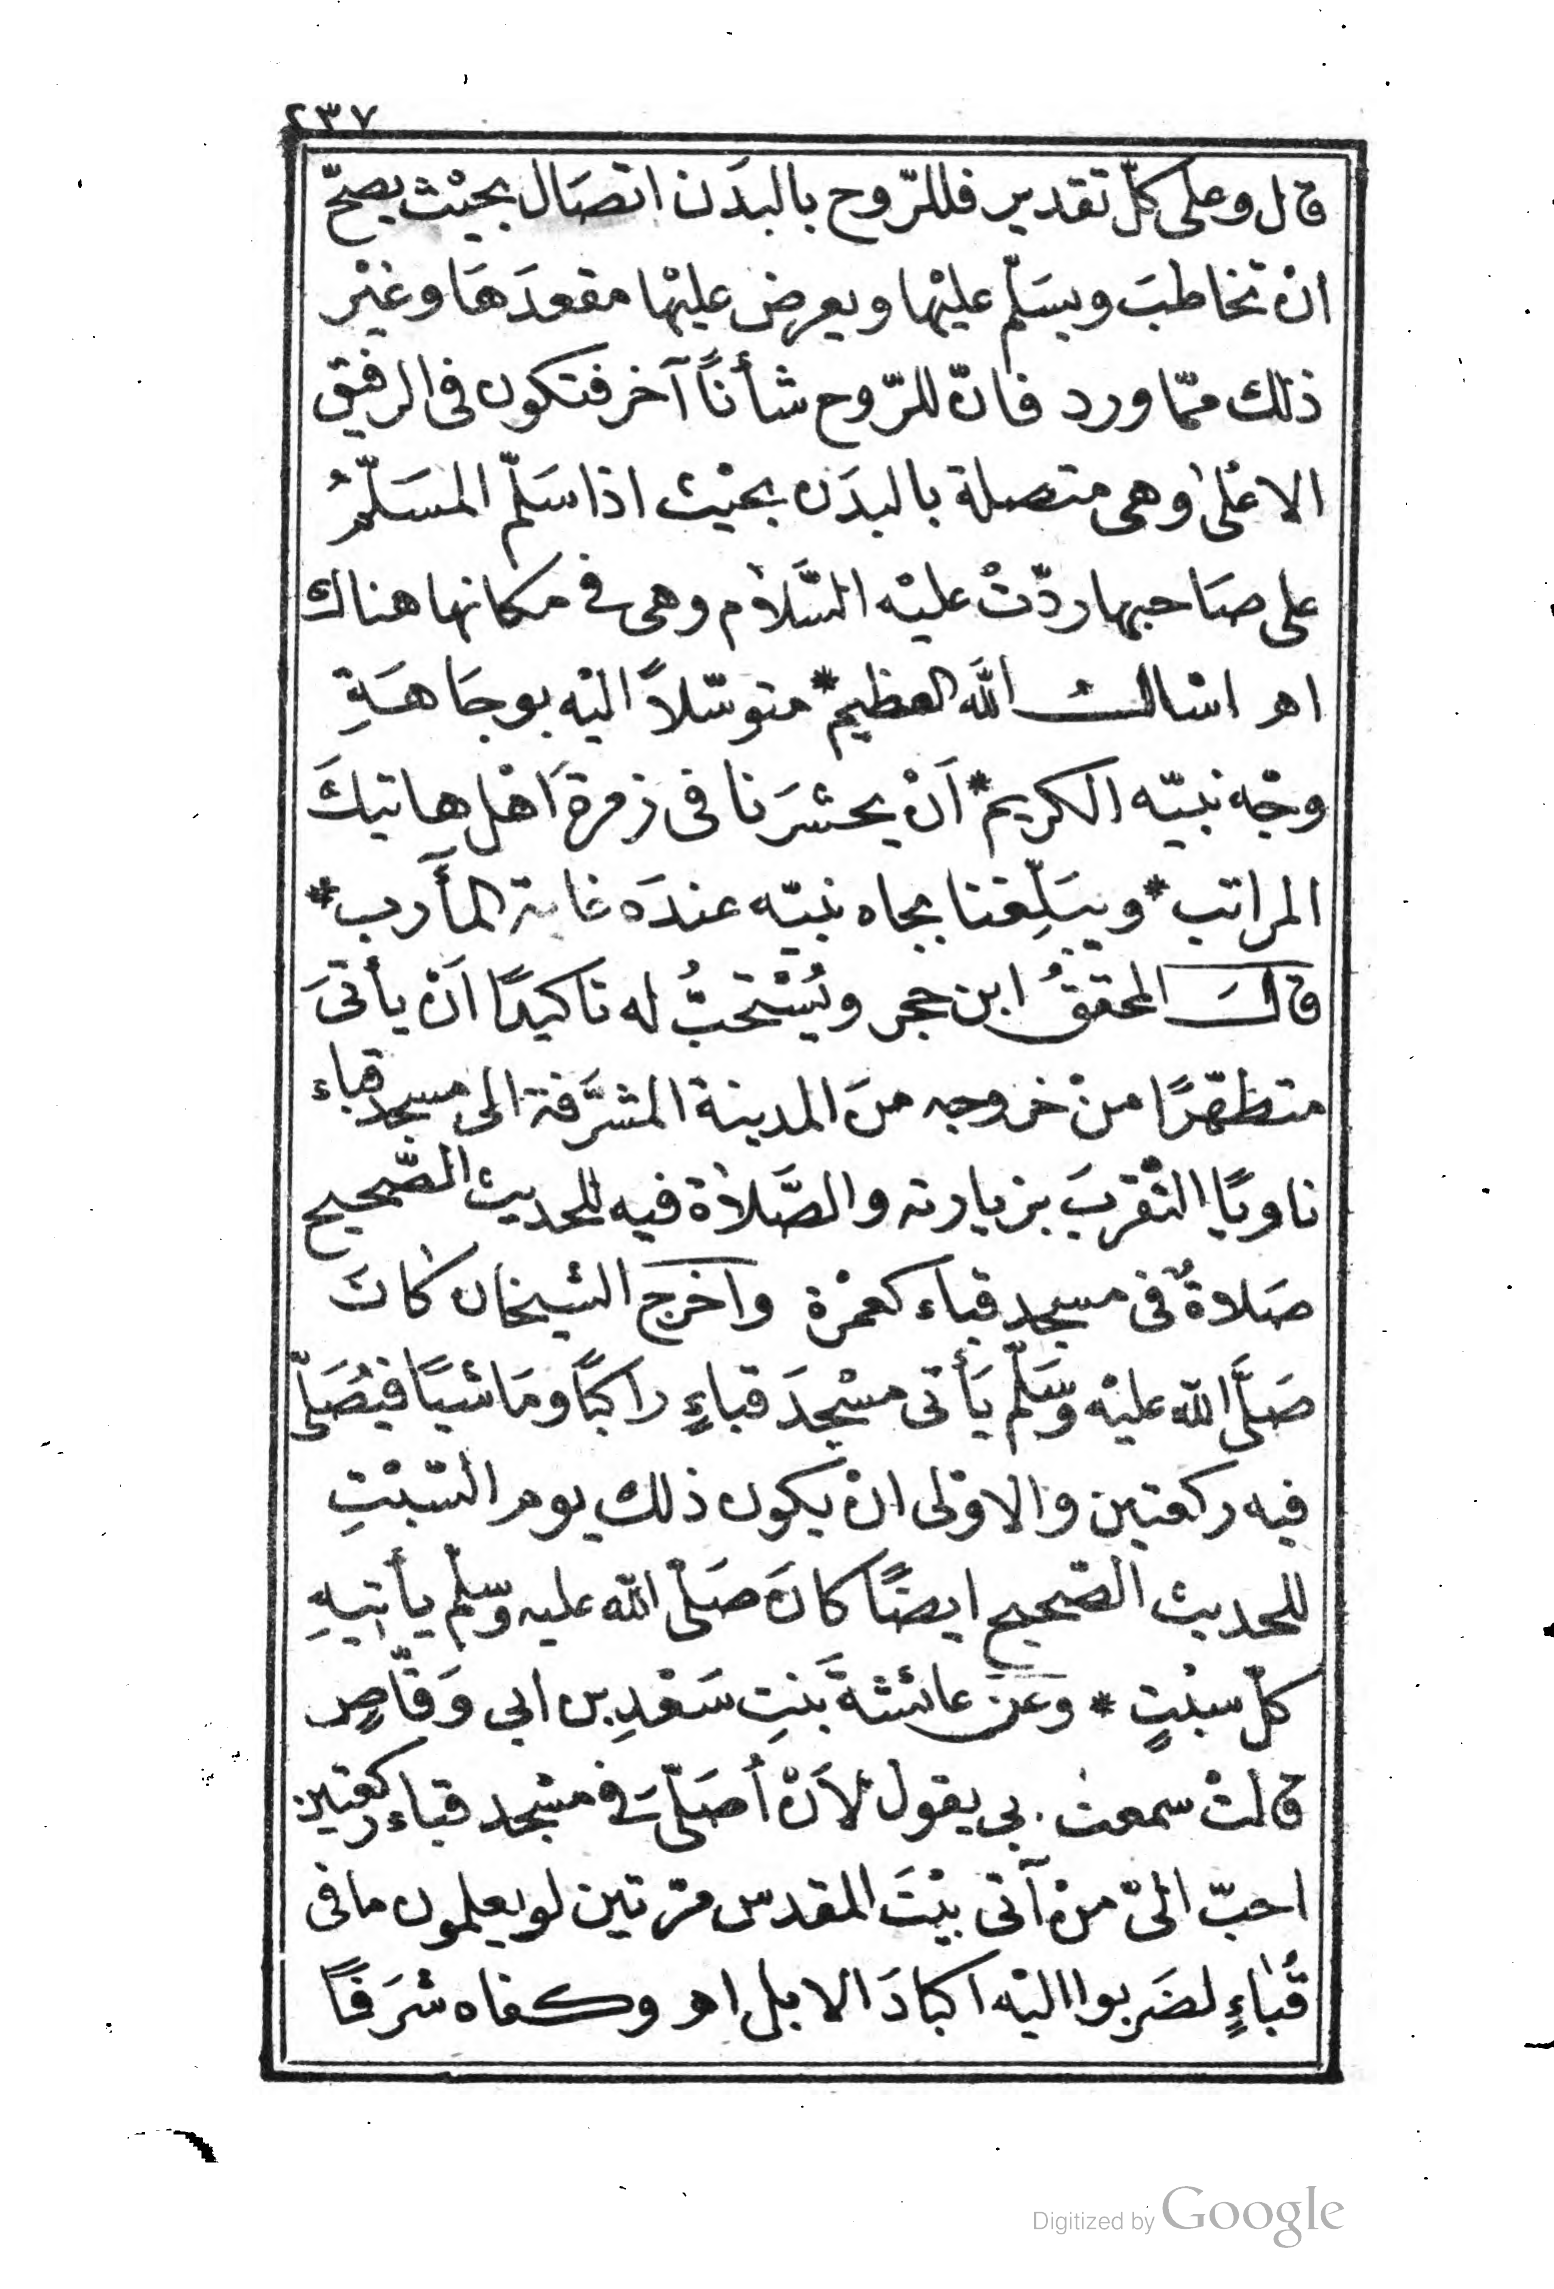 ٢٣٧
قال وعلى كلّ تقدير فللرّوح بالبدَن اتصَال بحيْث يصحّ
انْ تخاطبَ ويسَلّم عليْها ويعرض عليْها مقعدَهَا وغيْر
ذلك ممّا ورد فانّ للرّوح شأنًا آخر فتكون فى الرفيق
الاعْلىٰ وهى متصلة بالبدَن بحيْث اذا سَلّم المسَلّمُ
على صَاحبها ردّتْ عليْه السَّلاٰم وهى فى مكانها هناك
اه اسْال اللّٰه العظيم * متوسّلاً اليْه بوجَاهَةِ
وجْه نبيّه الكريم * اَنْ يحشرَنا فى زمرة اَهْل هاتيكَ
المراتب * ويبَلِّغنا بجاه نبيّه عندَه غاية المأرب *
قالَ المحققُ ابن حجر ويُسْتحبُّ له تاكيدًا اَنْ يأتىَ
متطهّرًا منْ خروجه منَ المدينة المشرَّفة الى مسجد قباء
ناويًا التقربَ بزيارته والصَّلاٰة فيه للحديث الصَّحيح
صَلاةٌ فى مسجد قباء كعمْرة واخرج الشيخان كانَ
صَلَّى اللّٰه عليْه وسَلّم يَأتى مسْجدَ قباءٍ راكبًا ومَاشيًا فيُصَلّى
فيه ركعتين والاوْلى انْ يكون ذلك يوم السّبْتِ
للحديث الصّحيح ايضًا كانَ صَلّى اللّٰه عليه وسلّم يأتيهِ
كلّ سبْتٍ * وعَنْ عائشةَ بَنتِ سَعْدِ بن ابى وَقّاصٍ
قالتْ سمعت بى يقول لاَنْ أصَلّىَ فى مسْجد قباء ركعتين
احبّ الىّ منْ آتى بيْتَ المقدس مرّتين لو يعلمون ما فى
قُبٰاءٍ لضَربوا اليْه اكبادَ الابل اه وكفاه شرَفًا
Digitized by Google